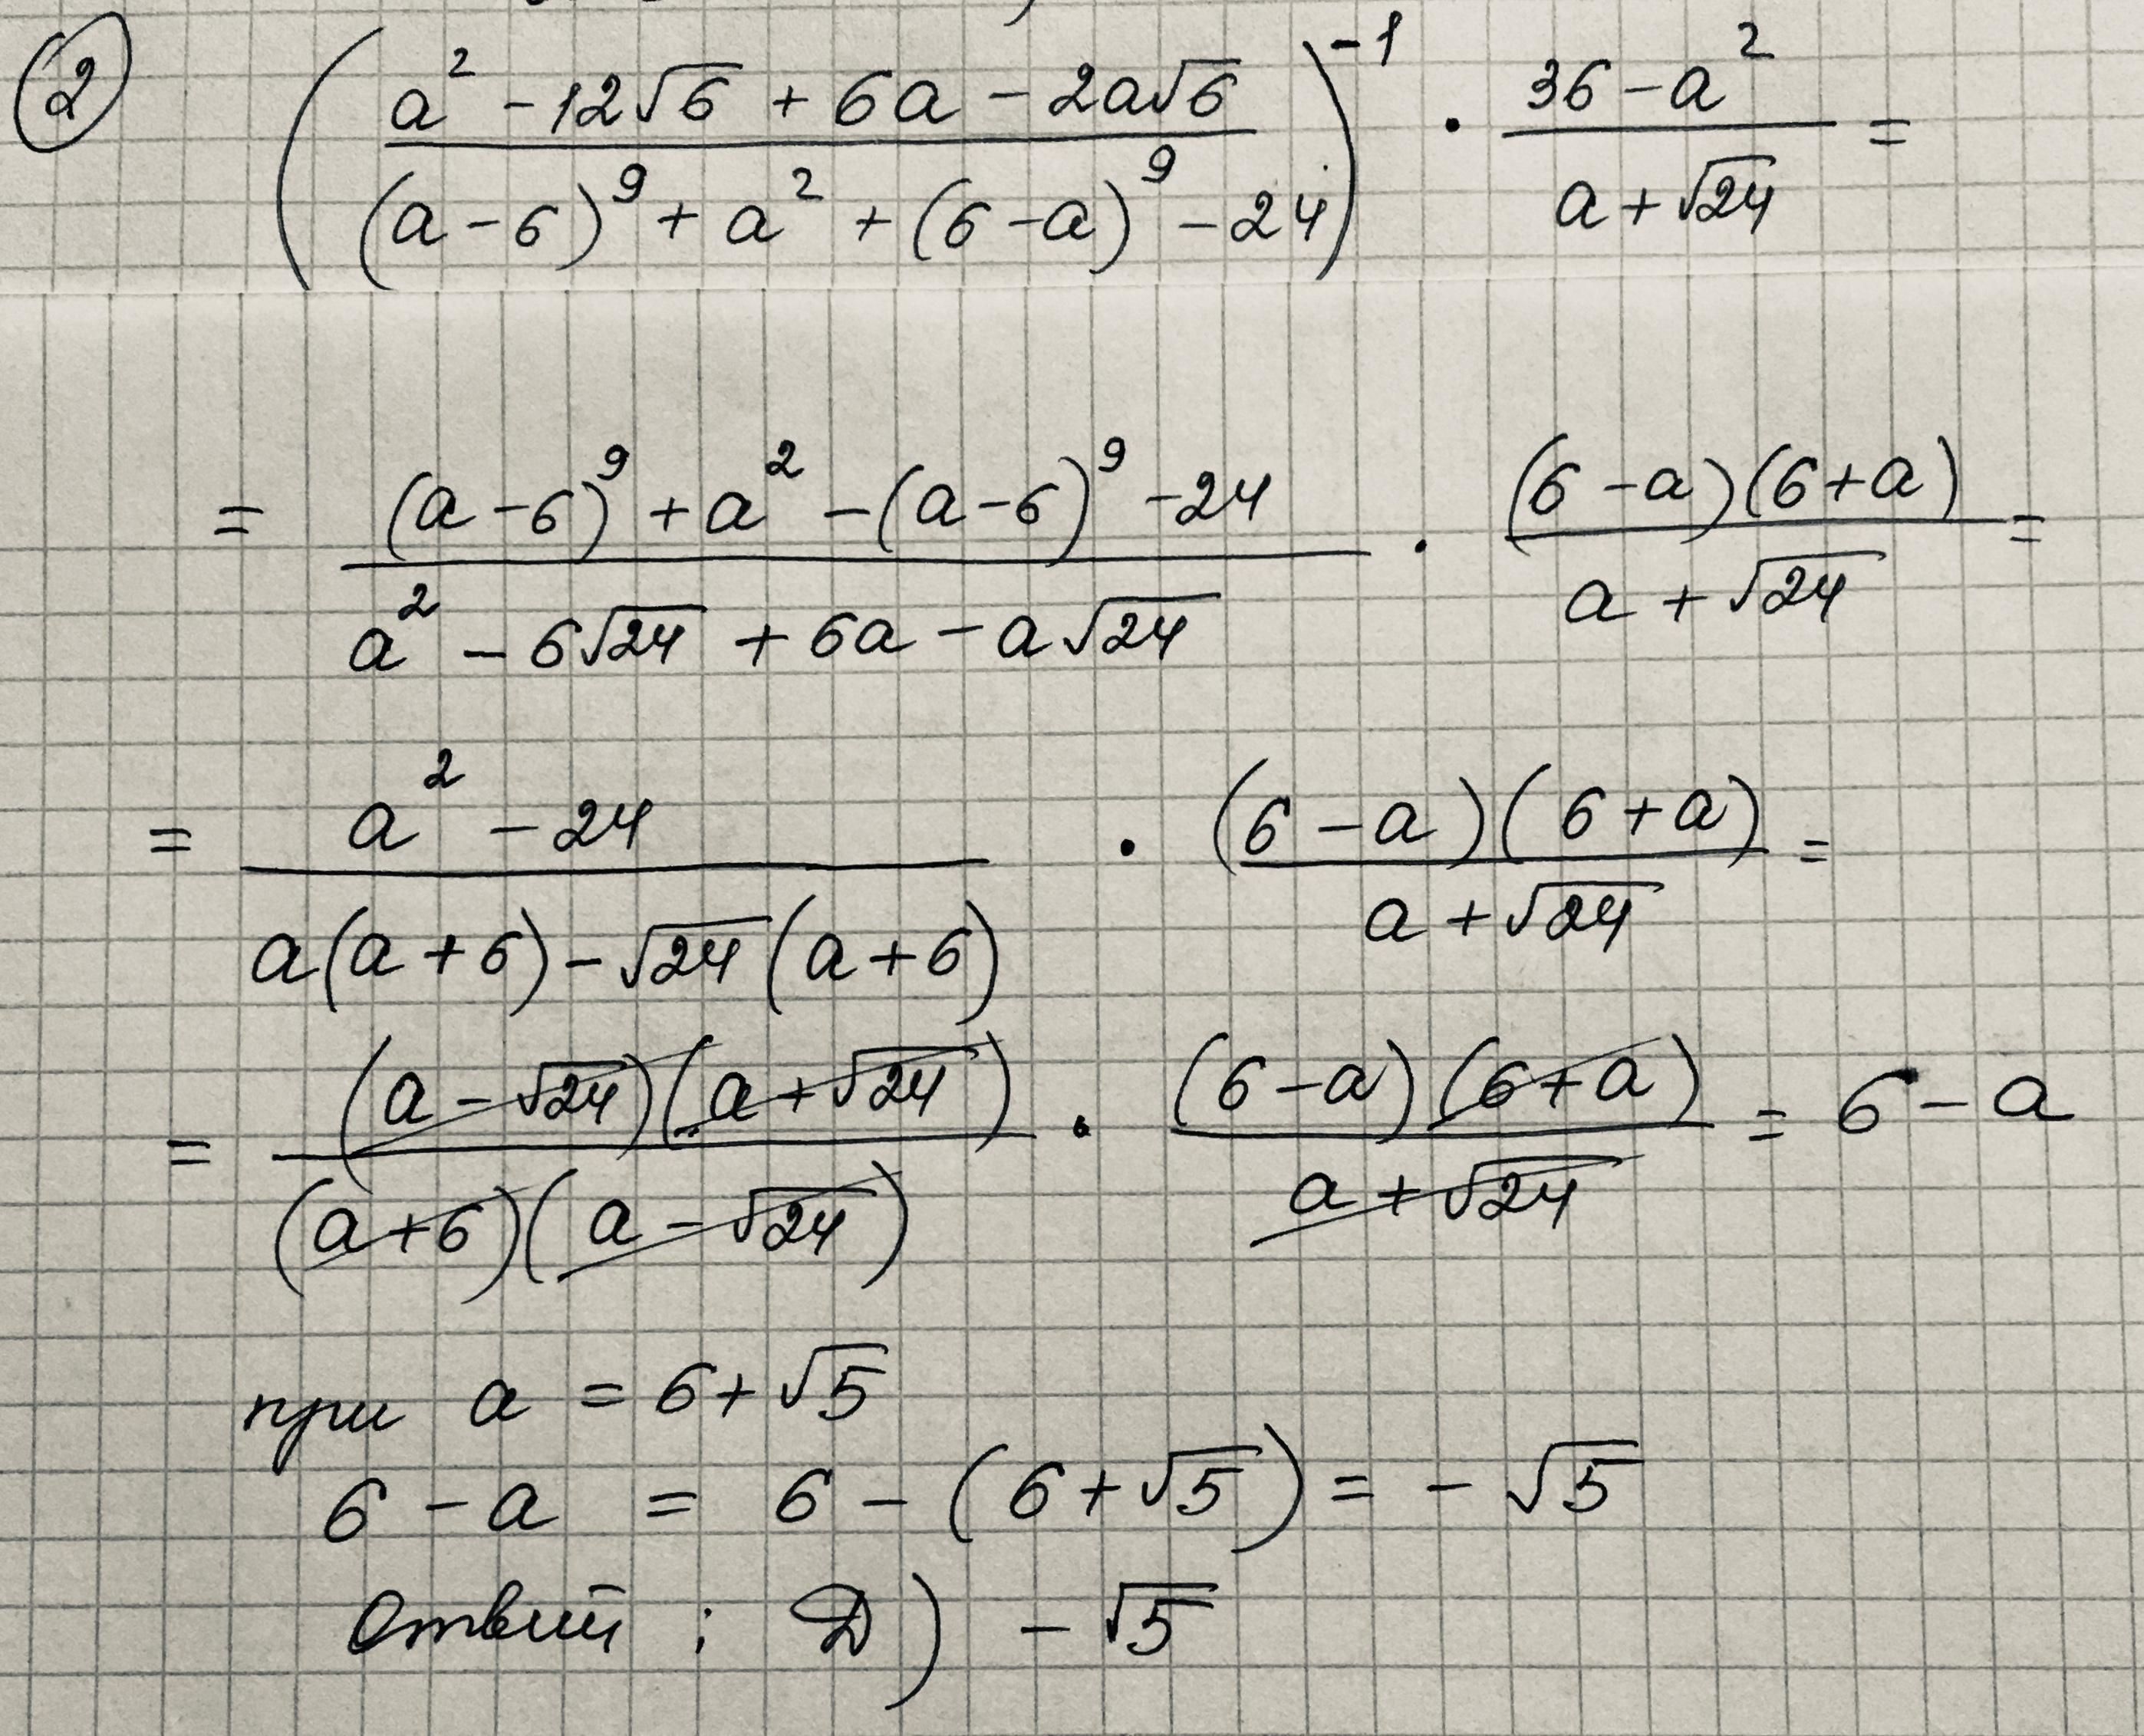 ② ( (a² - 12√6 + 6a - 2a√6) / ((a-6)⁹ + a² + (6-a)⁹ - 24) )⁻¹ · (36 - a²) / (a + √24) =
= ((a-6)⁹ + a² - (a-6)⁹ - 24) / (a² - 6√24 + 6a - a√24) · ((6-a)(6+a)) / (a + √24) =
= (a² - 24) / (a(a+6) - √24(a+6)) · ((6-a)(6+a)) / (a + √24) =
= ((a - √24)(a + √24)) / ((a+6)(a - √24)) · ((6-a)(6+a)) / (a + √24) = 6 - a
при a = 6 + √5
6 - a = 6 - (6 + √5) = - √5
Ответ : Д) - √5